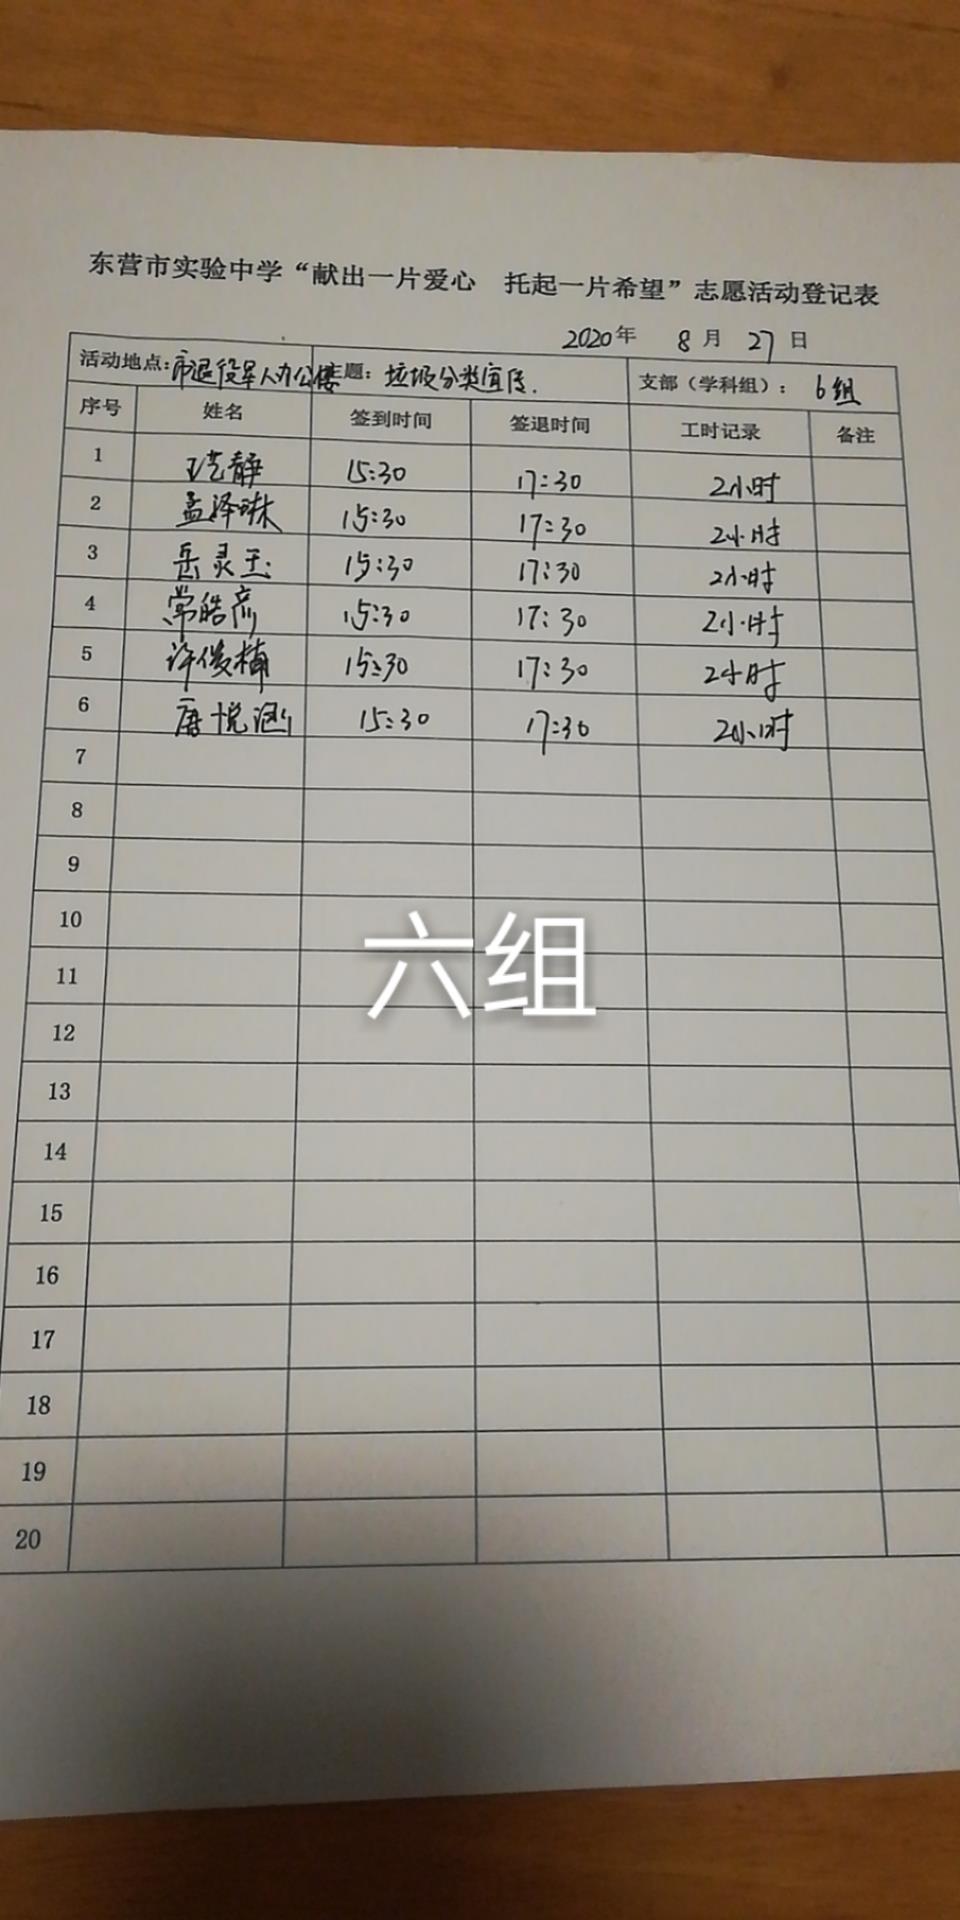 东营市实验中学“献出一片爱心 托起一片希望”志愿活动登记表
2020年 8月 27日
活动地点:市退役军人办公楼 主题:垃圾分类宣传. 支部(学科组): 6组
序号 姓名 签到时间 签退时间 工时记录 备注
1 静 15:30 17:30 2小时
2 孟泽琳 15:30 17:30 2小时
3 岳灵玉 15:30 17:30 2小时
4 常皓彦 15:30 17:30 2小时
5 许俊楠 15:30 17:30 2小时
6 唐悦涵 15:30 17:30 2小时
7
8
9
六组
10
11
12
13
14
15
16
17
18
19
20